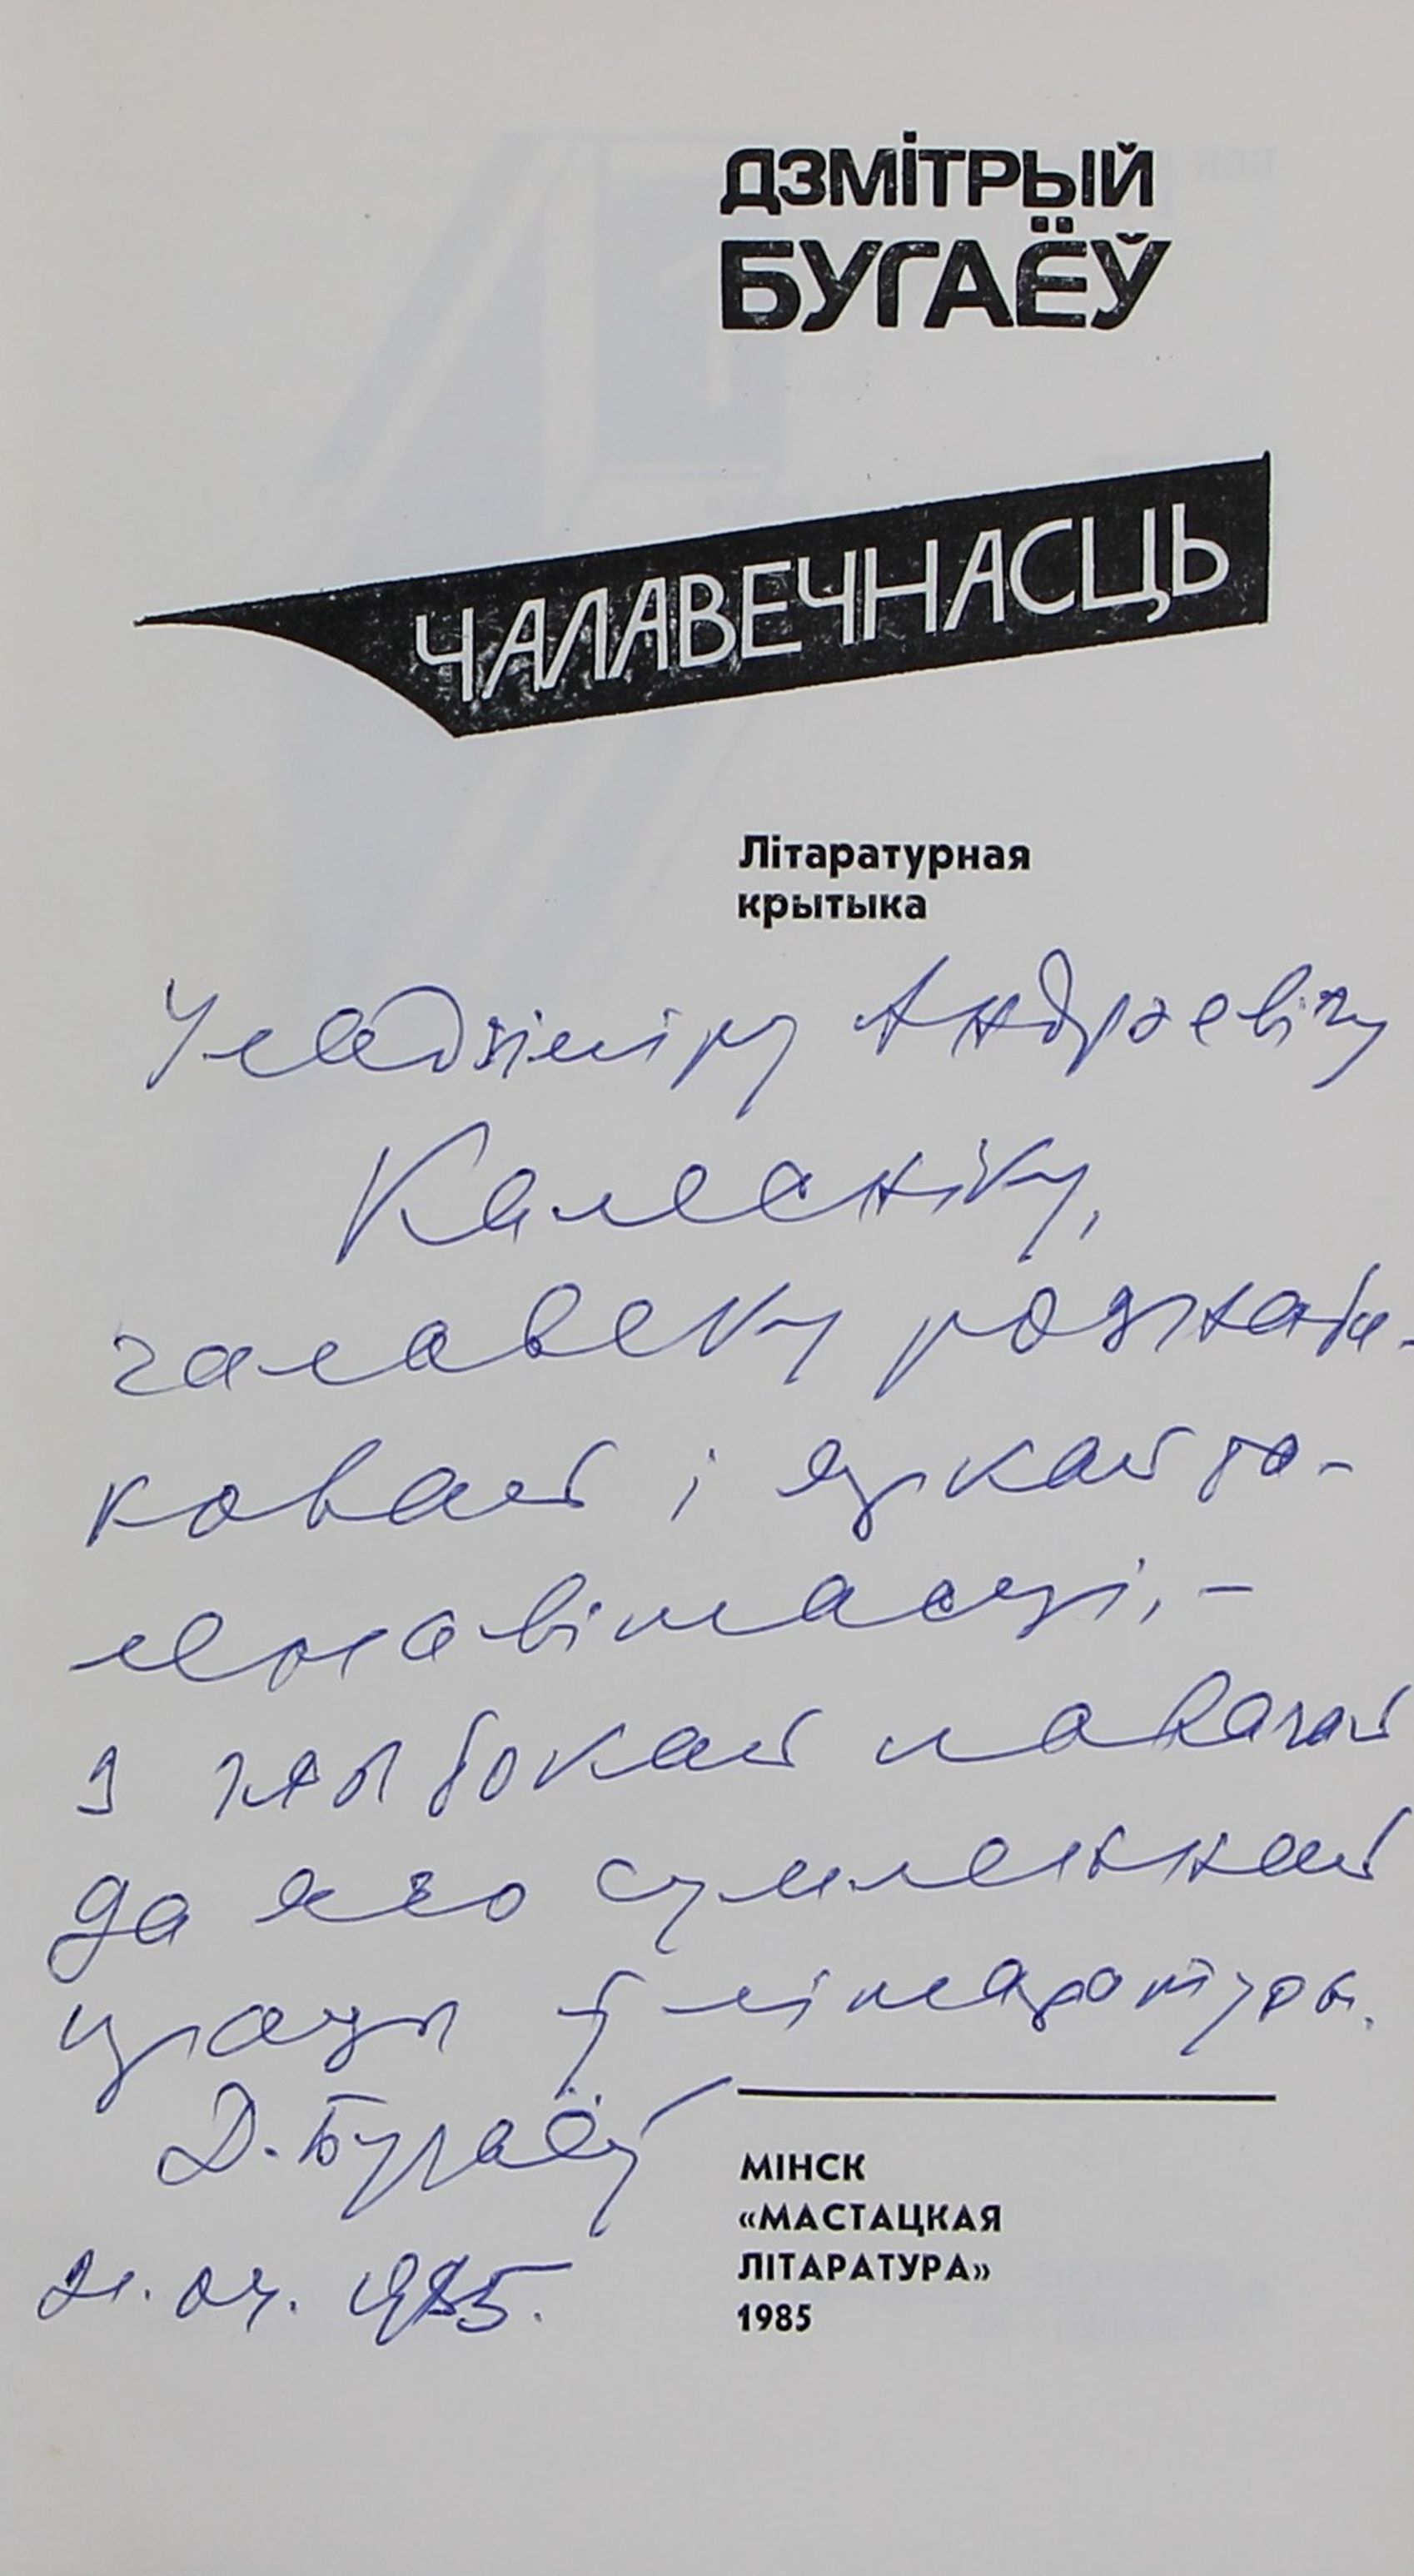 ДЗМІТРЫЙ
БУГАЁЎ
ЧАЛАВЕЧНАСЦЬ
Літаратурная
крытыка
Уладзіміру Андрэевічу
Калесніку,
чалавеку рознабе-
ковай і яркай та-
ленавітасці, –
з глыбокай павагай
да яго сумленнай
працы ў літаратуры.
Д. Бугаёў
21.04.1985.
МІНСК
«МАСТАЦКАЯ
ЛІТАРАТУРА»
1985